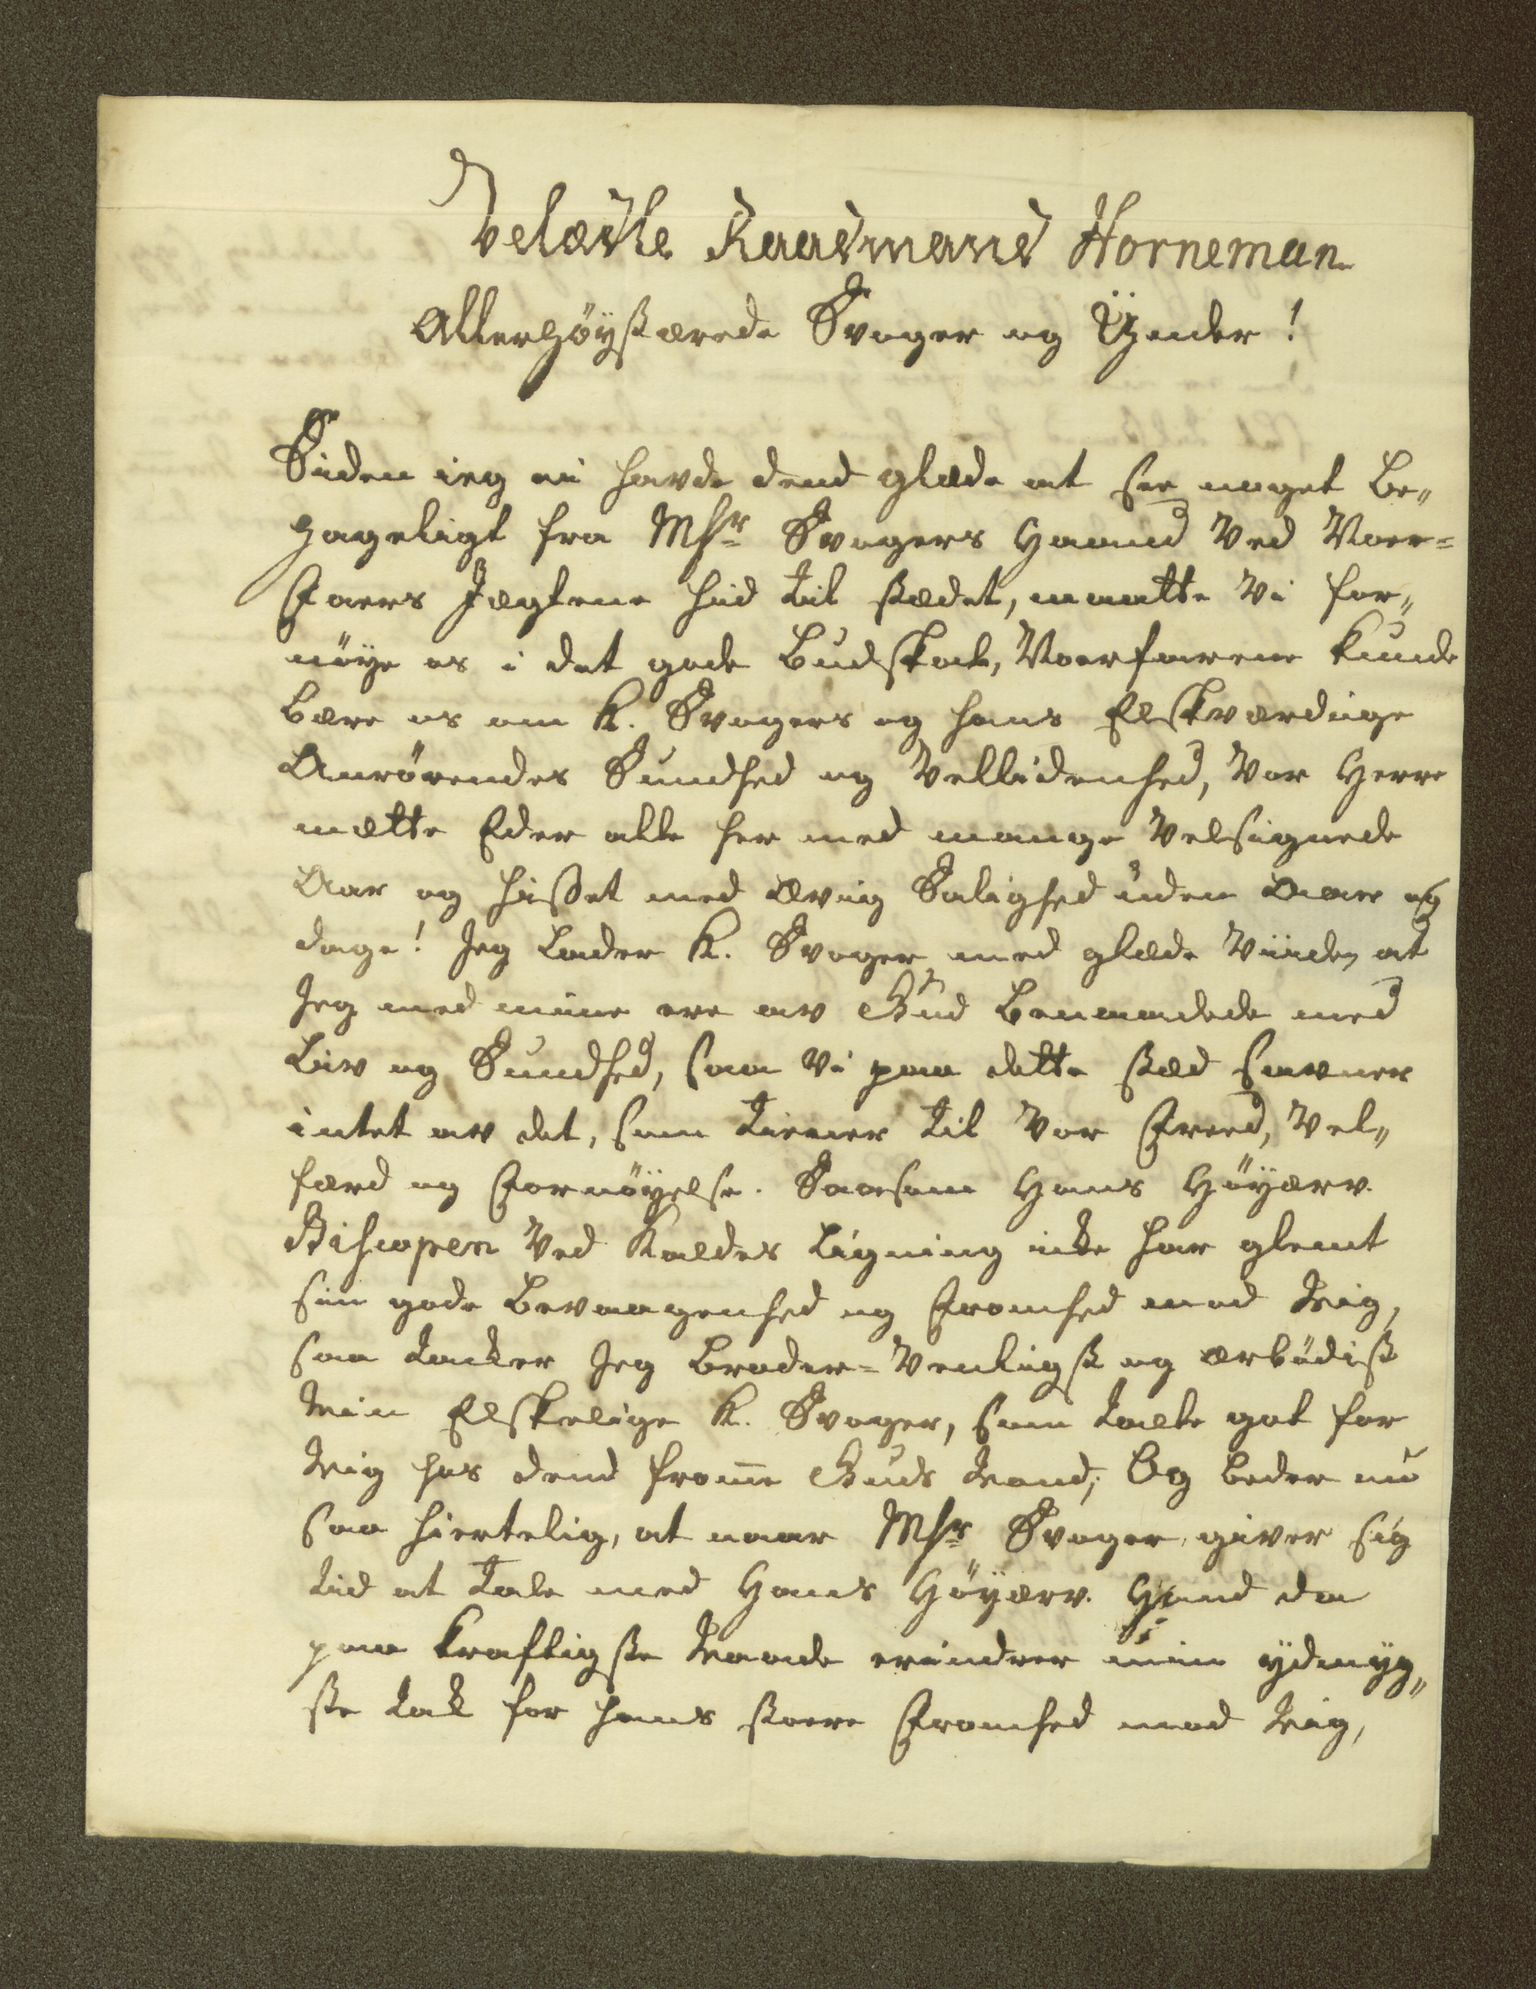 Velædle Raadmand Horneman
Allerhöystærede Svoger og Ynder!
Siden ieg ei havde dend glæde at see noget Be„
hageligt fra Msr Svogers Haand Ved Voer=
Faers Jægtene hid til stædet, maatte Vi for„
nöye os i det gode Budskab, Voerfarene kunde
bære os om K. Svogers og hans Elskværdige
Anrörendes Sundhed og Vellidenhed, Vor Herre
mætte Eder alle her med mange Velsignede
Aar og hisset med Ævig Salighed uden Aar og
dage! Jeg Lader K. Svoger med glæde Viide, at
Jeg med mine ere av Gud Benaadede med
Liv og Sundhed, saa Vi paa dette stæd savner
intet av det, som tiener til Vor Freed, Vel„
færd og Fornöyelse. Saasom Hans Höyærv.
Biscopen Ved Kaldes Ligning icke har glemt
sin gode Bevaagenhed og Fromhed mod Mig,
saa tacker Jeg Broder=Venligst og ærbödist
Min Elskelige K. Svoger, som talte got for
Mig hos dend fromme Guds Mand; Og beder nu
saa hiertelig, at naar Msr Svoger giver sig
tid at Tale med Hans Höyærv. Hand da
paa kraftigste Maade erindrer min ydmyg„
ste tak for hans stoere Fromhed mod Mig,